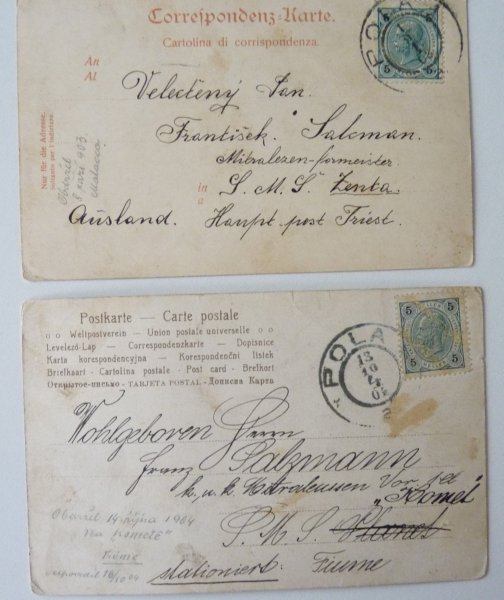 Correspondenz-Karte.
Cartolina di corrispondenza.
An
Al
Nur für die Adresse.
Soltanto per l'indirizzo.
Velectěný Pan.
František Salcman.
Mitralezen-formeister
in
a
S. M. S. Zenta.
Ausland. Haupt post Triest.
Obdržel
8 září 903
POLA
5 5
5 5
Postkarte — Carte postale
Weltpostverein — Union postale universelle
Levelező-Lap — Correspondenzkarte — Dopisnice
Karta korespondencyjna — Korespondenční lístek
Briefkaart — Cartolina postale — Post card — Brefkort
Открытое-письмо — TARJETA POSTAL — Дописна Карта
POLA
13
10
5 5
5 5
Wohlgeboren Herrn
Franz Salzmann
k. u. k.
"Komet"
S. M. S. Planet
stationiert: Fiume
Obdržel 14 října 1904
"na Kometě"
Fiume